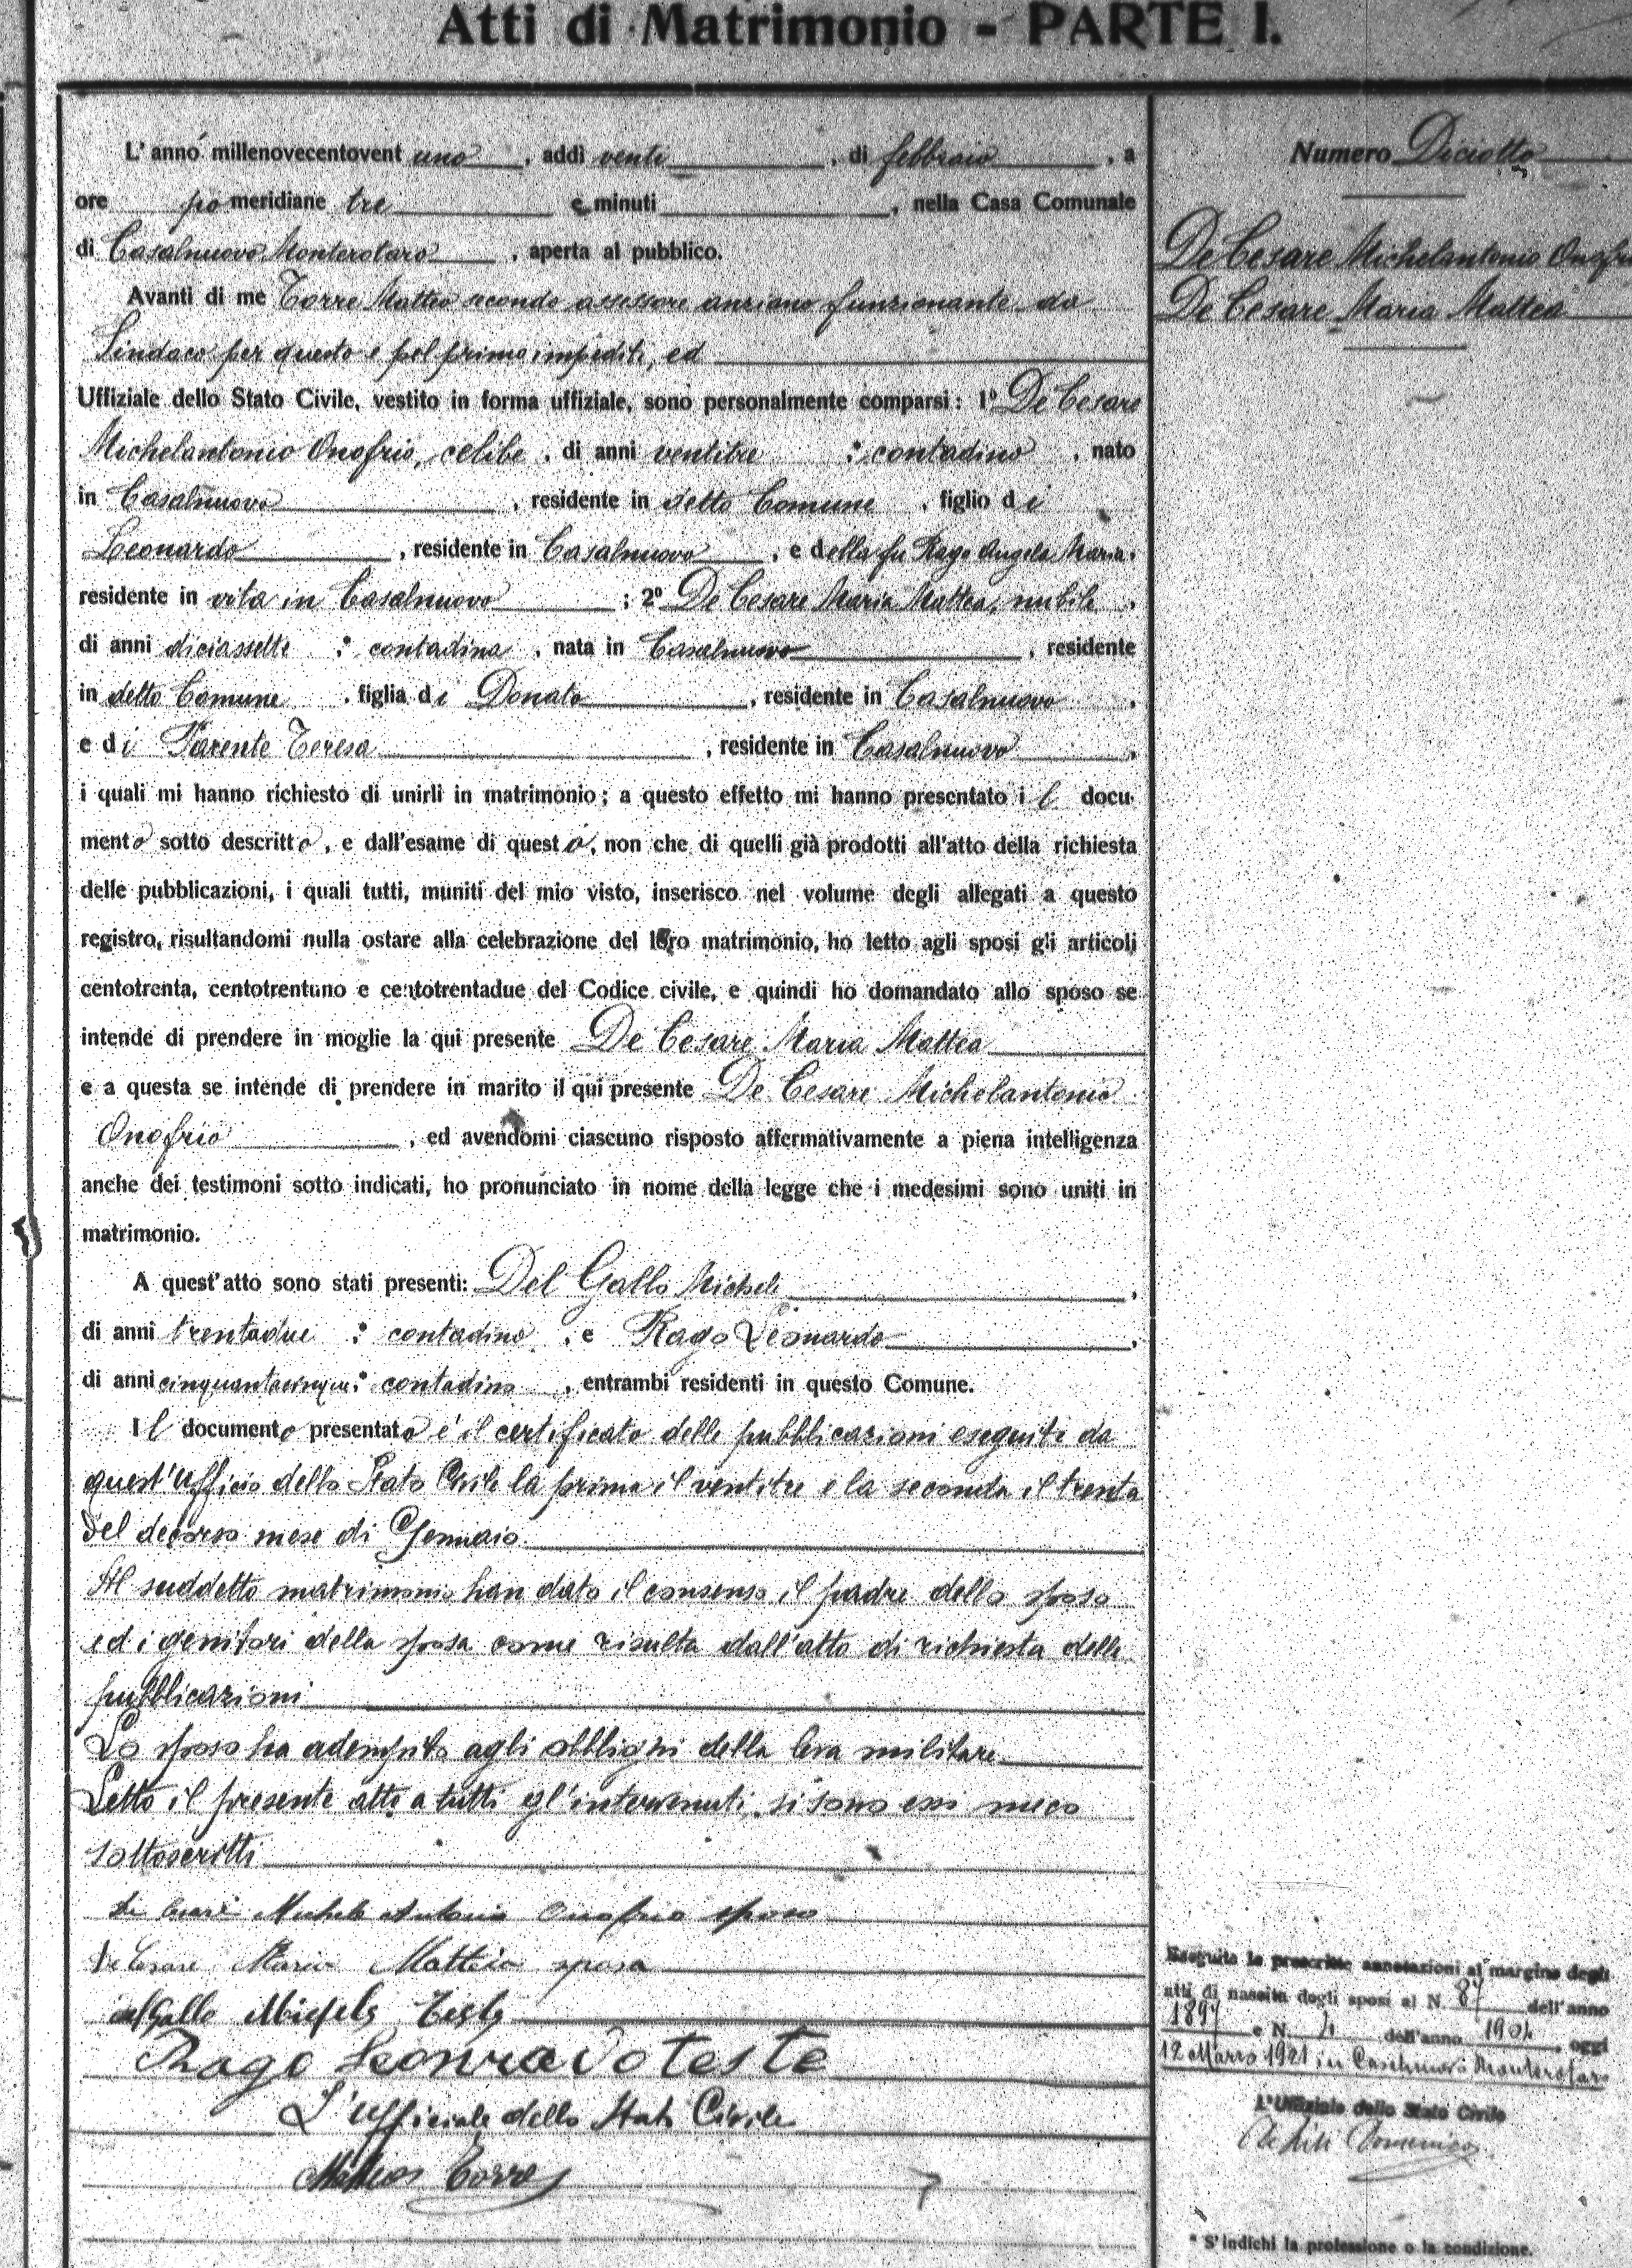 Atti di Matrimonio - PARTE I.
L' anno millenovecentovent uno, addì venti, di febbraio, a
ore po meridiane tre e minuti, nella Casa Comunale
di Casalnuovo Monterotaro, aperta al pubblico.
Avanti di me Torre Matteo secondo assessore anziano funzionante da
Sindaco per questo e pel primo impediti, ed
Uffiziale dello Stato Civile, vestito in forma uffiziale, sono personalmente comparsi: 1º De Cesare
Michelantonio Onofrio, celibe, di anni ventitre : contadino, nato
in Casalnuovo, residente in detto Comune, figlio di
Leonardo, residente in Casalnuovo, e della fu Rago Angela Maria,
residente in vita in Casalnuovo; 2º De Cesare Maria Mattea, nubile,
di anni diciassette : contadina, nata in Casalnuovo, residente
in detto Comune, figlia di Donato, residente in Casalnuovo,
e di Parente Teresa, residente in Casalnuovo,
i quali mi hanno richiesto di unirli in matrimonio; a questo effetto mi hanno presentato il docu-
mento sotto descritto, e dall'esame di questo, non che di quelli già prodotti all'atto della richiesta
delle pubblicazioni, i quali tutti, muniti del mio visto, inserisco nel volume degli allegati a questo
registro, risultandomi nulla ostare alla celebrazione del loro matrimonio, ho letto agli sposi gli articoli
centotrenta, centotrentuno e centotrentadue del Codice civile, e quindi ho domandato allo sposo se
intende di prendere in moglie la qui presente De Cesare Maria Mattea
e a questa se intende di prendere in marito il qui presente De Cesare Michelantonio
Onofrio, ed avendomi ciascuno risposto affermativamente a piena intelligenza
anche dei testimoni sotto indicati, ho pronunciato in nome della legge che i medesimi sono uniti in
matrimonio.
A quest'atto sono stati presenti: Del Gallo Michele,
di anni trentadue : contadino, e Rago Leonardo,
di anni cinquantacinque : contadino, entrambi residenti in questo Comune.
Il documento presentato è il certificato delle pubblicazioni eseguite da
quest'ufficio dello Stato Civile la prima il ventitre e la seconda il trenta
del decorso mese di Gennaio.
Al suddetto matrimonio han dato il consenso il padre dello sposo
ed i genitori della sposa come risulta dall'atto di richiesta delle
pubblicazioni
Lo sposo ha adempito agli obblighi della leva militare
Letto il presente atto a tutti gl'intervenuti, si sono essi meco
sottoscritti
De Cesare Michele Antonio Onofrio sposo
De Cesare Maria Matteia sposa
del Gallo Michele Teste
Rago Leonrado teste
L'ufficiale dello Stato Civile
Matteo Torre
Numero Diciotto
De Cesare Michelantonio Onofrio
De Cesare Maria Mattea
Eseguite le prescritte annotazioni al margine degli
atti di nascita degli sposi al N. 87 dell'anno
1897 e N. 4 dell'anno 1904, oggi
12 Marzo 1921 in Casalnuovo Monterotaro
L'Uffiziale dello Stato Civile
Domenico
* S'indichi la professione o la condizione.